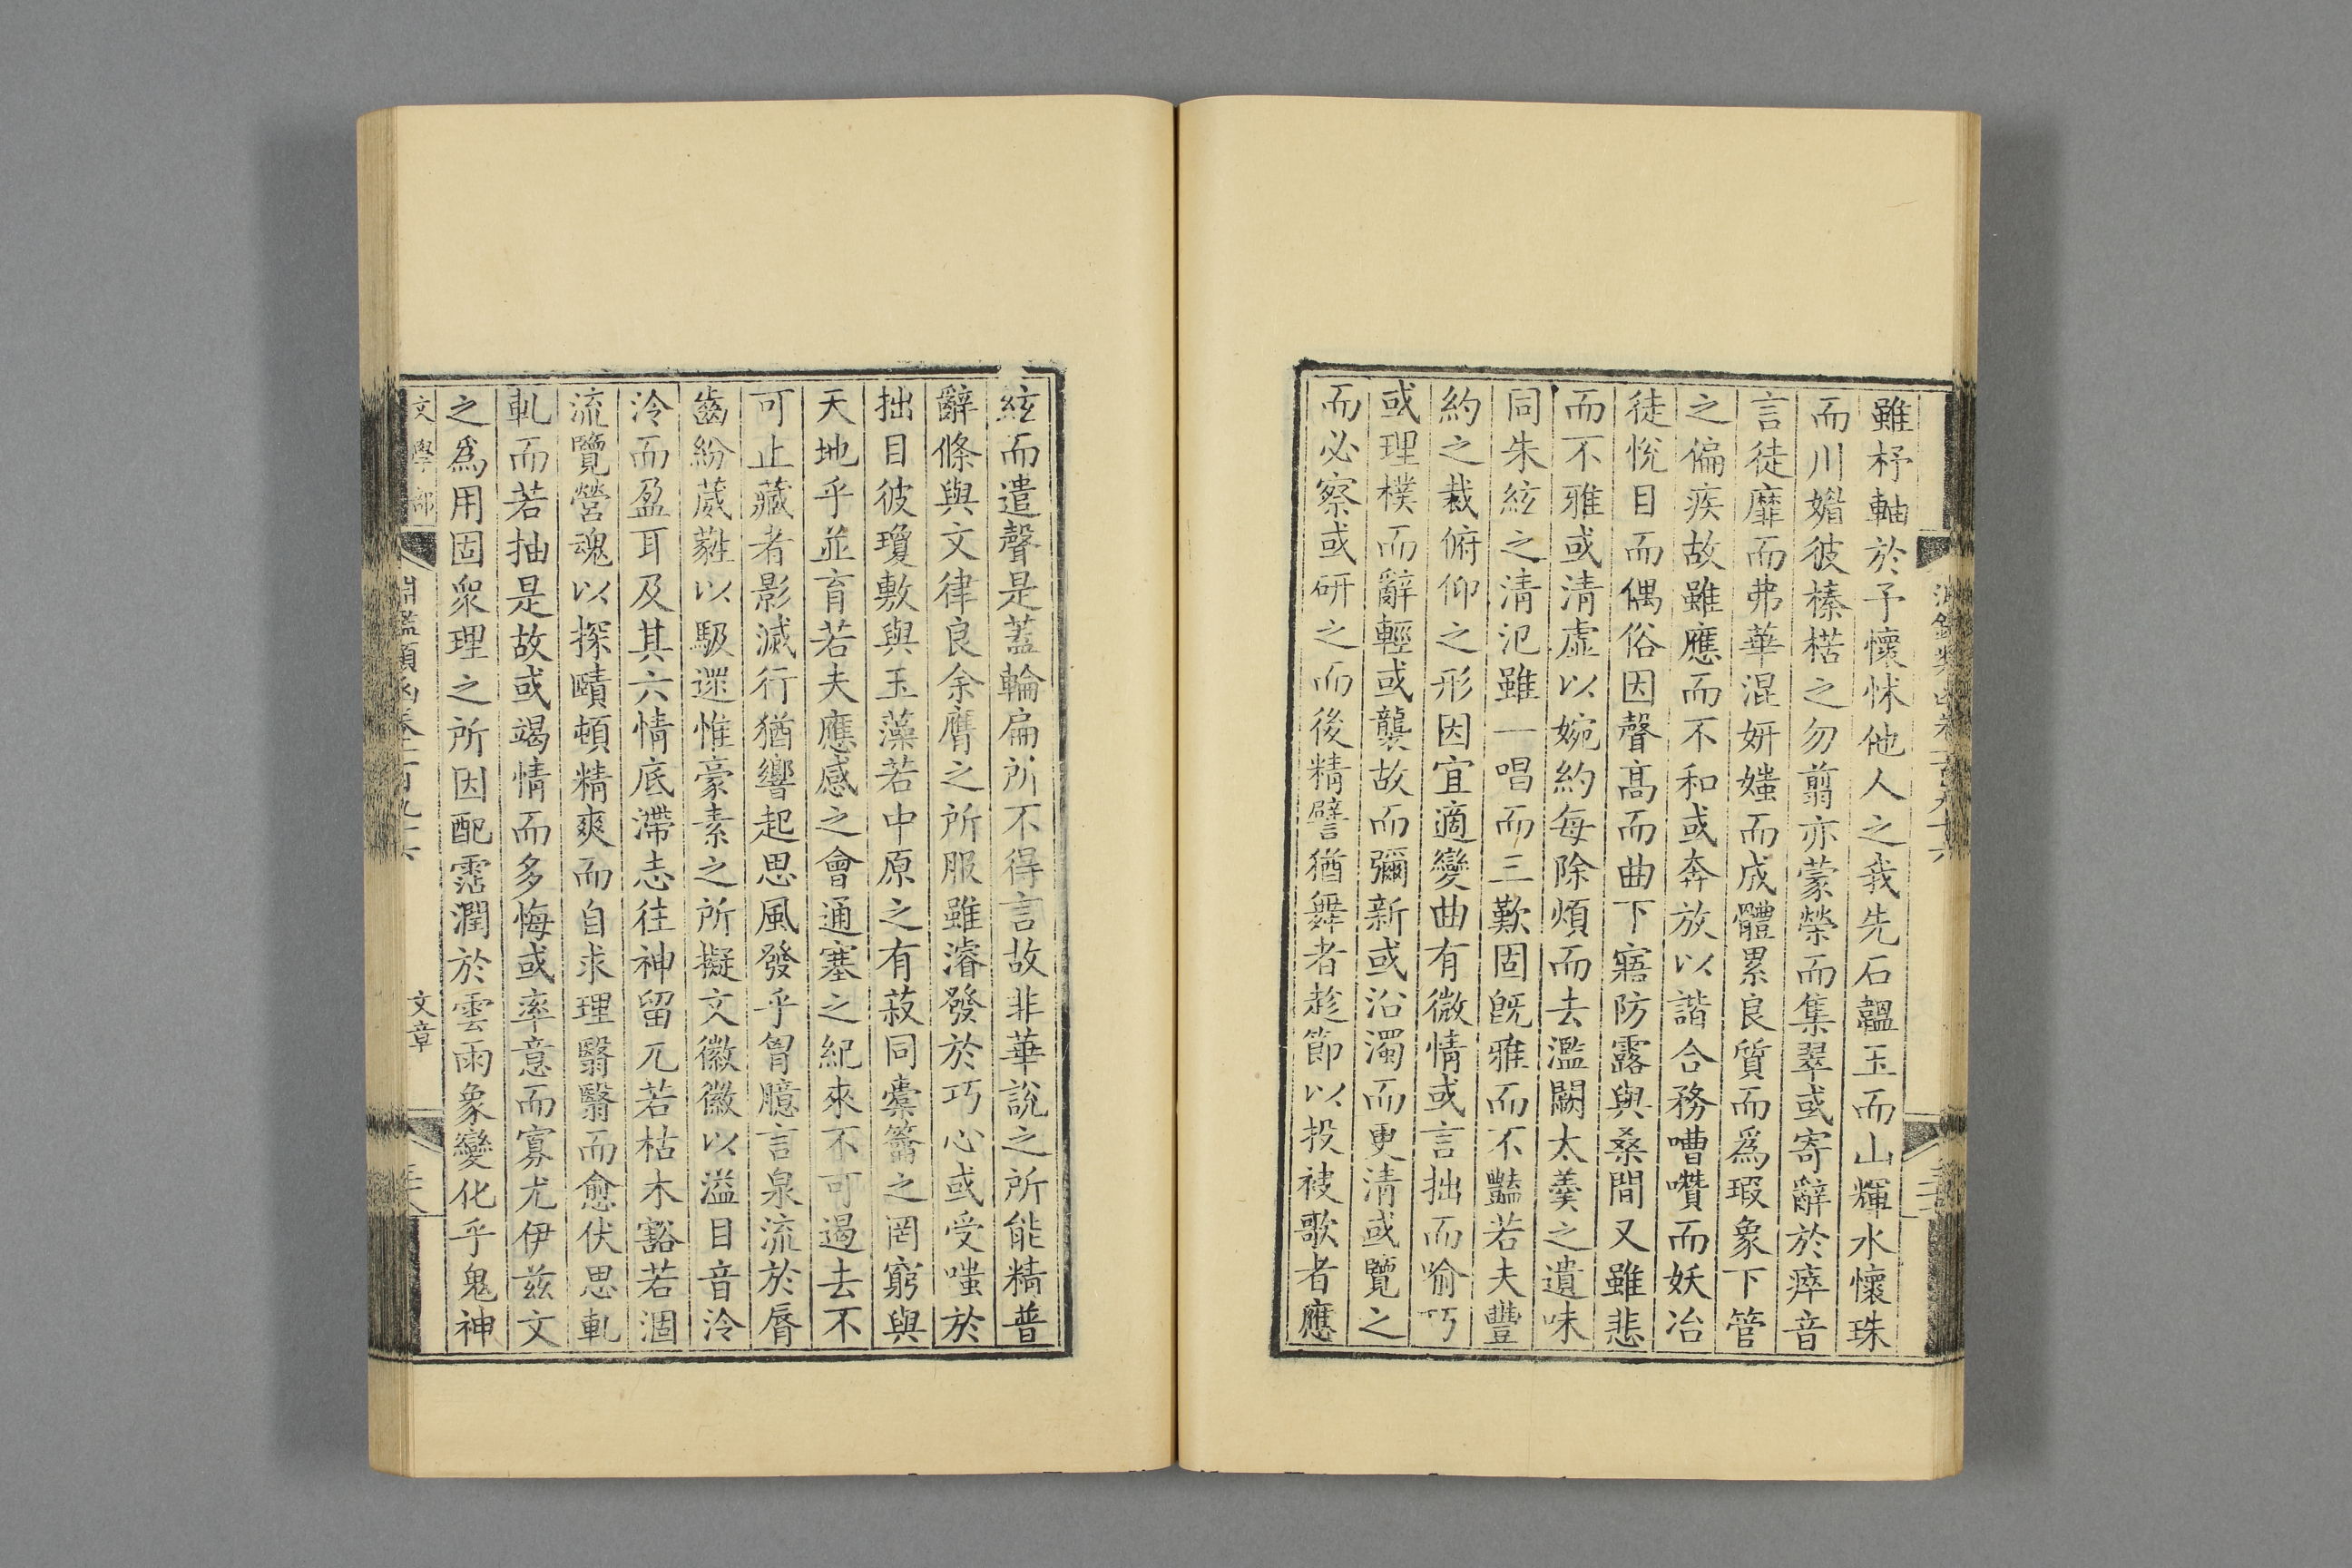 雖杼軸於予懷怵他人之我先石韞玉而山輝水懷珠
而川媚彼榛楛之勿翦亦蒙榮而集翠或寄辭於瘁音
言徒靡而弗華混妍媸而成體累良質而爲瑕象下管
之偏疾故雖應而不和或奔放以諧合務嘈囋而妖冶
徒悅目而偶俗因聲高而曲下寤防露與桑間又雖悲
而不雅或清虛以婉約每除煩而去濫闕太羹之遺味
同朱絃之清氾雖一唱而三歎固旣雅而不豔若夫豐
約之裁俯仰之形因宜適變曲有微情或言拙而喻巧
或理樸而辭輕或襲故而彌新或沿濁而更清或覽之
而必察或研之而後精譬猶舞者趁節以投袂歌者應
絃而遣聲是蓋輪扁所不得言故非華說之所能精普
辭條與文律良余膺之所服雖濬發於巧心或受嗤於
拙目彼瓊敷與玉藻若中原之有菽同橐籥之罔窮與
天地乎並育若夫應感之會通塞之紀來不可遏去不
可止藏者影滅行猶響起思風發乎胷臆言泉流於脣
齒紛葳蕤以馺遝惟豪素之所擬文徽徽以溢目音泠
泠而盈耳及其六情底滯志往神留兀若枯木豁若涸
流覽營魂以探賾頓精爽而自求理翳翳而愈伏思軋
軋而若抽是故或竭情而多悔或率意而寡尤伊茲文
之爲用固衆理之所因配霑潤於雲雨象變化乎鬼神
文學部
淵鑑類函卷一百九十六
文章